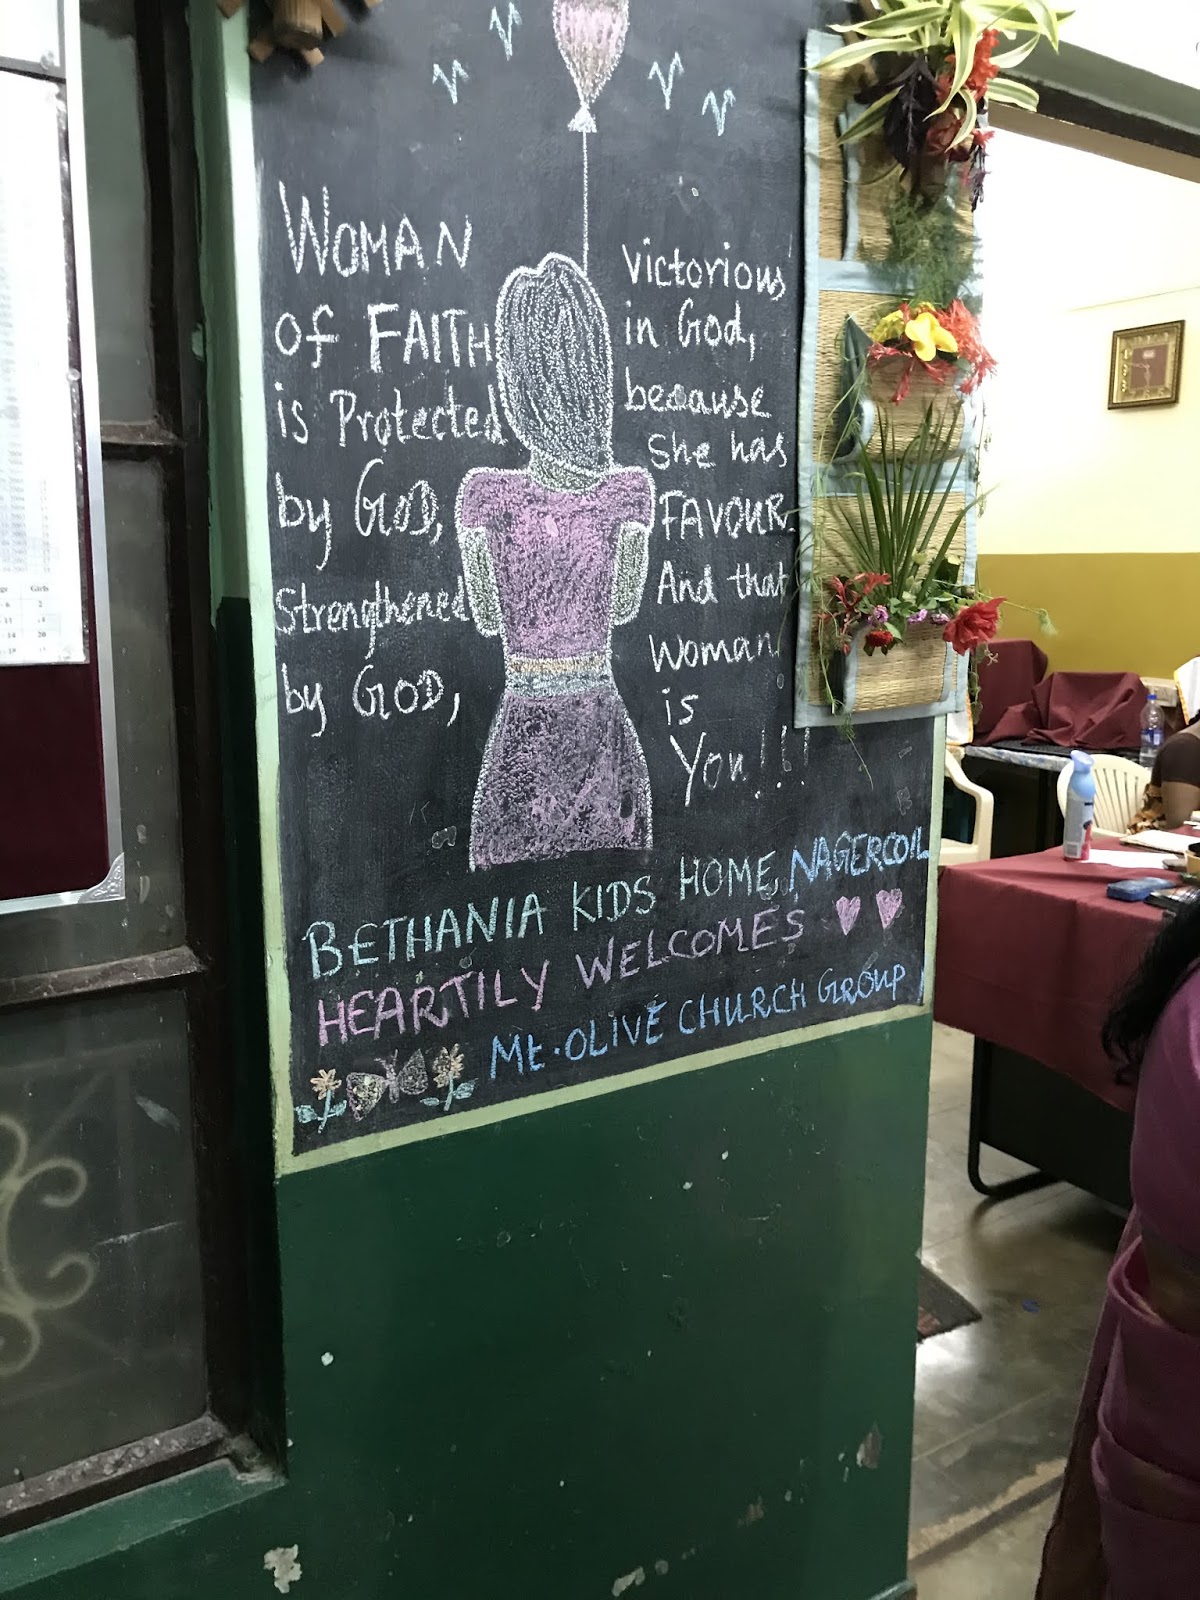 WOMAN
of FAITH
is Protected
by GOD,
Strengthened
by GOD,
victorious
in God,
because
she has
FAVOUR.
And that
woman
is
You!!!
BETHANIA KIDS HOME, NAGERCOIL
HEARTILY WELCOMES
Mt. OLIVE CHURCH GROUP
Girls
6 2
14 20